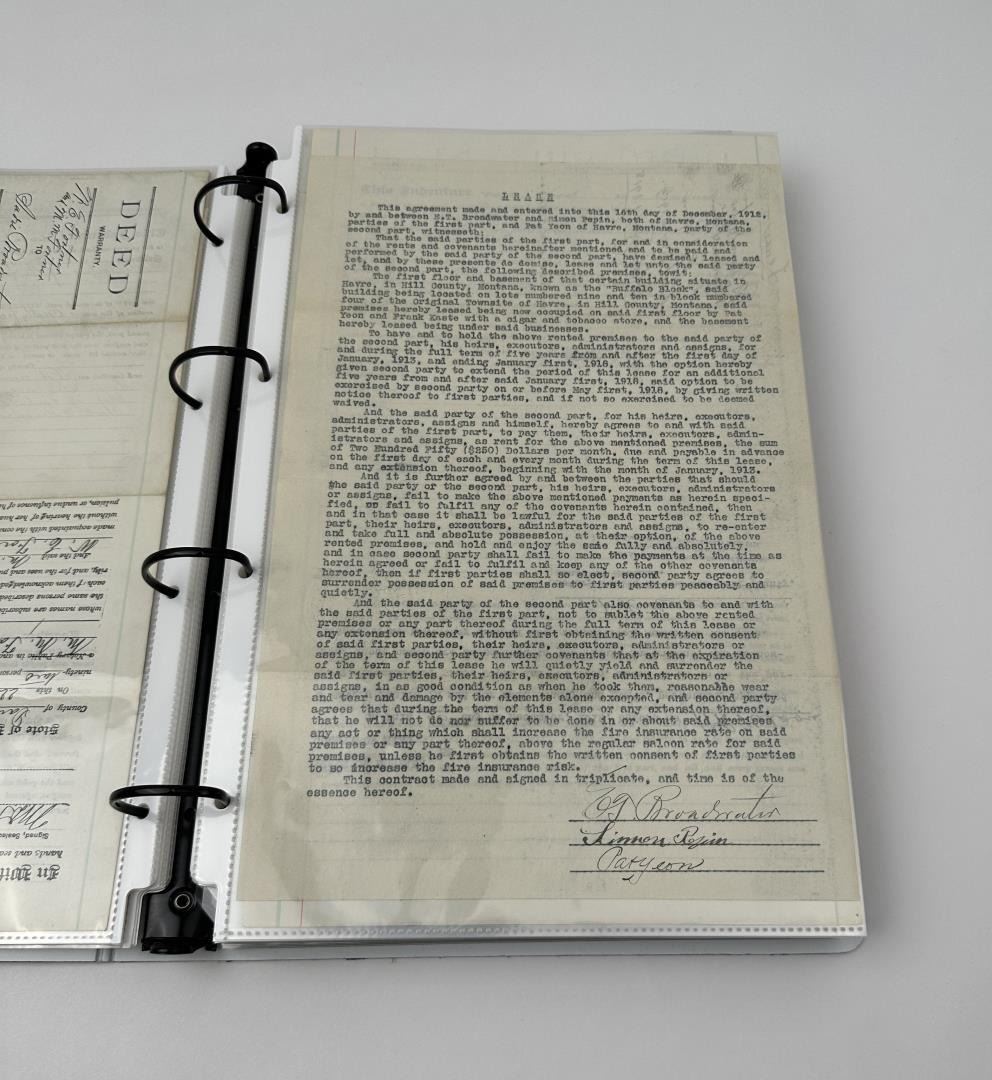 DEED
WARRANTY
TO
LEASE
This agreement made and entered into this 16th day of December, 1912,
by and between E.T. Broadwater and Simon Pepin, both of Havre, Montana,
parties of the first part, and Pat Yeon of Havre, Montana, party of the
second part, witnesseth:
That the said parties of the first part, for and in consideration
of the rents and covenants hereinafter mentioned and to be paid and
performed by the said party of the second part, have demised, leased and
let, and by these presents do demise, lease and let unto the said party
of the second part, the following described premises, towit:
The first floor and basement of that certain building situate in
Havre, in Hill County, Montana, known as the "Buffalo Block", said
building being located on lots numbered nine and ten in block numbered
four of the Original Townsite of Havre, in Hill County, Montana, said
premises hereby leased being now occupied on said first floor by Pat
Yeon and Frank Kaste with a cigar and tobacco store, and the basement
hereby leased being under said businesses.
To have and to hold the above rented premises to the said party of
the second part, his heirs, executors, administrators and assigns, for
and during the full term of five years from and after the first day of
January, 1913, and ending January first, 1918, with the option hereby
given second party to extend the period of this lease for an additional
five years from and after said January first, 1918, said option to be
exercised by second party on or before May first, 1918, by giving written
notice thereof to first parties, and if not so exercised to be deemed
waived.
And the said party of the second part, for his heirs, executors,
administrators, assigns and himself, hereby agrees to and with said
parties of the first part, to pay them, their heirs, executors, admin-
istrators and assigns, as rent for the above mentioned premises, the sum
of Two Hundred Fifty ($250) Dollars per month, due and payable in advance
on the first day of each and every month during the term of this lease,
and any extension thereof, beginning with the month of January, 1913.
And it is further agreed by and between the parties that should
the said party or the second part, his heirs, executors, administrators
or assigns, fail to make the above mentioned payments as herein speci-
fied, or fail to fulfil any of the covenants herein contained, then
and in that case it shall be lawful for the said parties of the first
part, their heirs, executors, administrators and assigns, to re-enter
and take full and absolute possession, at their option, of the above
rented premises, and hold and enjoy the same fully and absolutely,
and in case second party shall fail to make the payments at the time as
herein agreed or fail to fulfil and keep any of the other covenants
hereof, then if first parties shall so elect, second party agrees to
surrender possession of said premises to first parties peaceably and
quietly.
And the said party of the second part also covenants to and with
the said parties of the first part, not to sublet the above rented
premises or any part thereof during the full term of this lease or
any extension thereof, without first obtaining the written consent
of said first parties, their heirs, executors, administrators or
assigns, and second party further covenants that at the expiration
of the term of this lease he will quietly yield and surrender the
said first parties, their heirs, executors, administrators or
assigns, in as good condition as when he took them, reasonable wear
and tear and damage by the elements alone excepted, and second party
agrees that during the term of this lease or any extension thereof,
that he will not do nor suffer to be done in or about said premises
any act or thing which shall increase the fire insurance rate on said
premises or any part thereof, above the regular saloon rate for said
premises, unless he first obtains the written consent of first parties
to so increase the fire insurance risk.
This contract made and signed in triplicate, and time is of the
essence hereof.
E T Broadwater
Simon Pepin
Pat Yeon
pulsion, or undue influence of h
without the hearing of her hus
made acquainted with the cont
And the said
each, if them acknowledged
the same persons described
whose names are subscribed
a Notary Public in and
ninety
person
On this
County of
State of
Signed, Sealed
hands and sea
In Witn